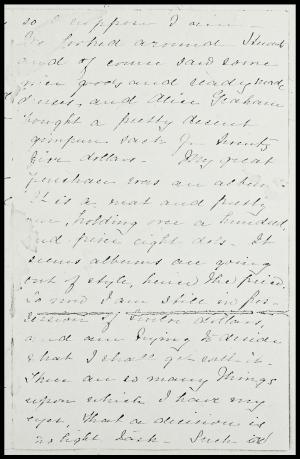 so I suppose I am.
We looked around Stewarts
and of course saw some
nice goods and ready made
dresses, and Alice Graham
bought a pretty decent
sack for twenty
five dollars - My great
purchase was an album.
It is a neat and pretty
one, holding over a hundred,
and price eight dols. It
seems albums are going
out of style, hence the price.
So now I am still in pos-
session of twelve dollars,
and am trying to decide
what I shall get with it.
There are so many things
upon which I have my
eyes, that a decision is
no light task - Such